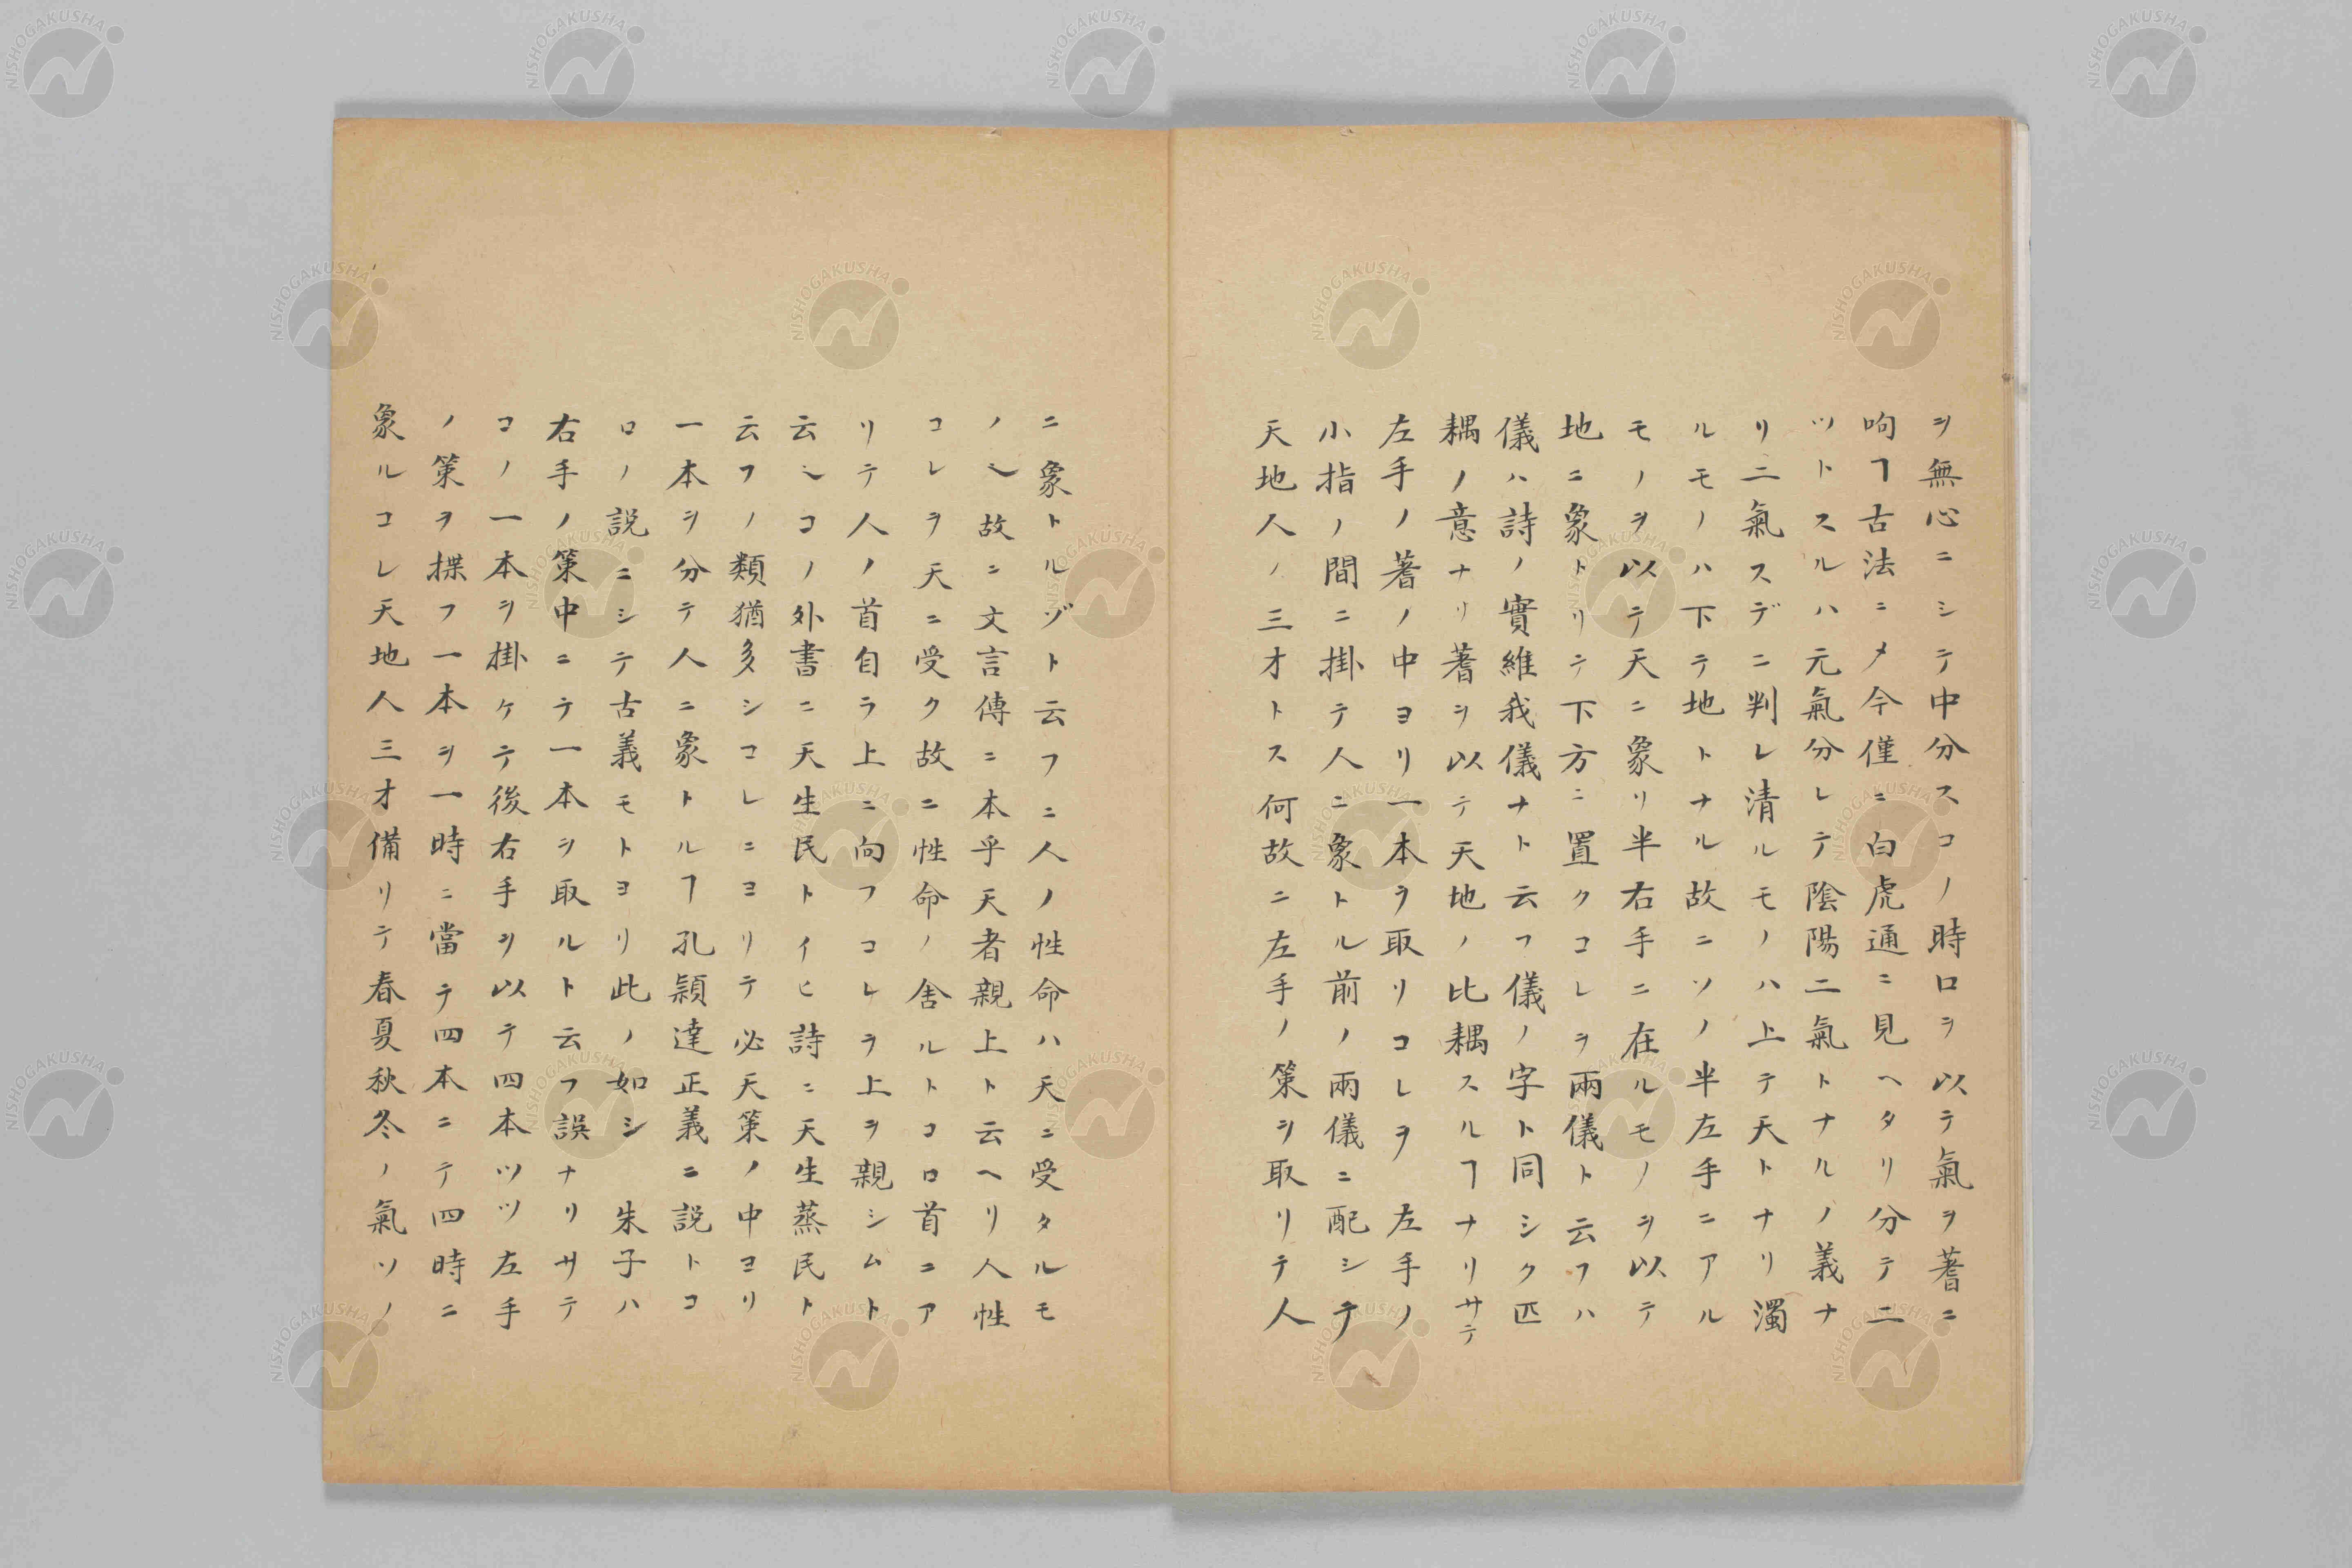 ヲ無心ニシテ中分スコノ時口ヲ以テ氣ヲ蓍ニ
响ヿ古法ニメ今僅ニ白虎通ニ見ヘタリ分テ二
ツトスルハ元氣分レテ陰陽二氣トナルノ義ナ
リ二氣スデニ判レ清ルモノハ上テ天トナリ濁
ルモノハ下テ地トナル故ニソノ半左手ニアル
モノヲ以テ天ニ象リ半右手ニ在ルモノヲ以テ
地ニ象トリテ下方ニ置クコレヲ兩儀ト云フハ
儀ハ詩ノ實維我儀ナト云フ儀ノ字ト同シク匹
耦ノ意ナリ蓍ヲ以テ天地ノ比耦スルヿナリサテ
左手ノ蓍ノ中ヨリ一本ヲ取リコレヲ 左手ノ
小指ノ間ニ掛テ人ニ象トル前ノ兩儀ニ配シテ
天地人ノ三才トス何故ニ左手ノ策ヲ取リテ人
ニ象トルゾト云フニ人ノ性命ハ天ニ受タルモ
ノ也故ニ文言傳ニ本乎天者親上ト云ヘリ人性
コレヲ天ニ受ク故ニ性命ノ舎ルトコロ首ニア
リテ人ノ首自ラ上ニ向フコレヲ上ヲ親シムト
云也コノ外書ニ天生民トイヒ詩ニ天生蒸民ト
云フノ類猶多シコレニヨリテ必天策ノ中ヨリ
一本ヲ分テ人ニ象トルヿ孔穎達正義ニ説トコ
ロノ説ニシテ古義モトヨリ此ノ如シ 朱子ハ
右手ノ策中ニテ一本ヲ取ルト云フ誤ナリサテ
コノ一本ヲ掛ケテ後右手ヲ以テ四本ツツ左手
ノ策ヲ揲フ一本ヲ一時ニ當テ四本ニテ四時ニ
象ルコレ天地人三才備リテ春夏秋冬ノ氣ソノ
NISHOGAKUSHA